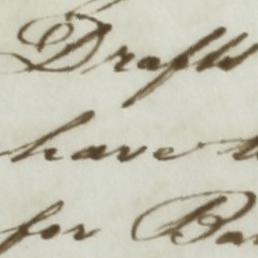 Drafts
have
for